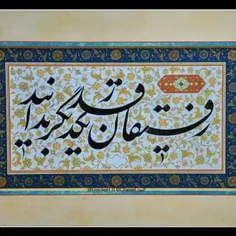 رفیقان قدر یکدیگر بدانید